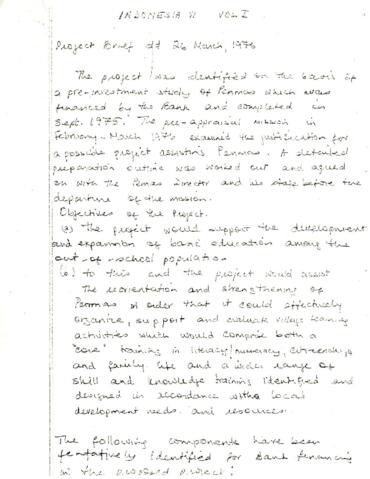 INDONESIA VI VOL I
Project Brief dd 26 March, 1975
The project was identified on the basis of
a pre-investment study of Penmas which was
financed by the Bank and completed in
Sept. 1975. The pre-appraisal mission in
February-March 1975 examined the justification for
a possible project assisting Penmas. A detailed
preparation outline was worked out and agreed
on with the Penmas Director and his staff before the
departure of the mission.
Objectives of the Project.
(a) The project would support the development
and expansion of basic education among the
out-of-school population
to this end the project would assist
The reorientation and strengthening of
Penmas in order that it could effectively
organize, support and evaluate village learning
activities which would comprise both a
"core" training in literacy/numeracy, citizenship
and family life and a wider range of
skill and knowledge training identified and
designed in accordance with local
development needs and resources.
The following components have been
tentatively identified for Bank financing
in the proposed project: